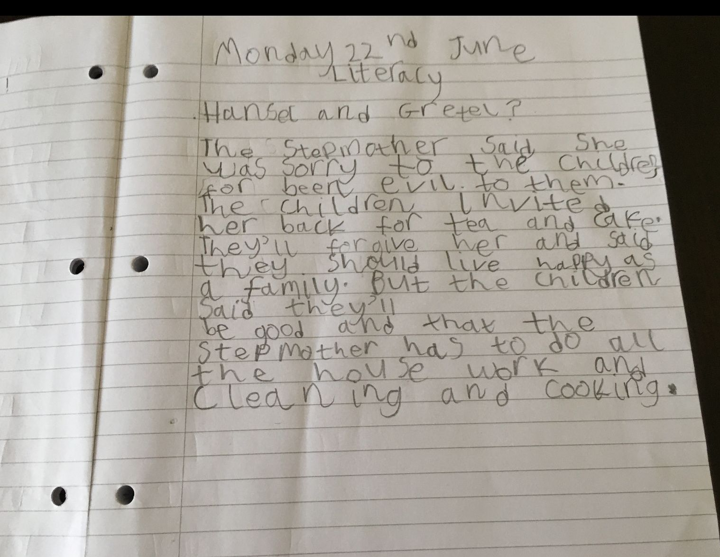 Monday 22nd June
Literacy
Hansel and Gretel?
The Stepmother said She
was sorry to the Children
for been evil. to them.
The children invited
her back for tea and cake.
They'll forgive her and said
they should live happy as
a family. But the children
said they'll
be good and that the
Stepmother has to do all
the house work and
Cleaning and cooking.